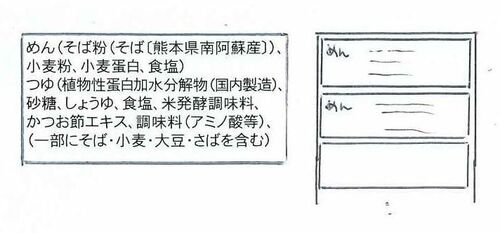 めん(そば粉(そば〔熊本県南阿蘇産〕)、
小麦粉、小麦蛋白、食塩)
つゆ(植物性蛋白加水分解物(国内製造)、
砂糖、しょうゆ、食塩、米発酵調味料、
かつお節エキス、調味料(アミノ酸等)、
(一部にそば・小麦・大豆・さばを含む)
めん
めん